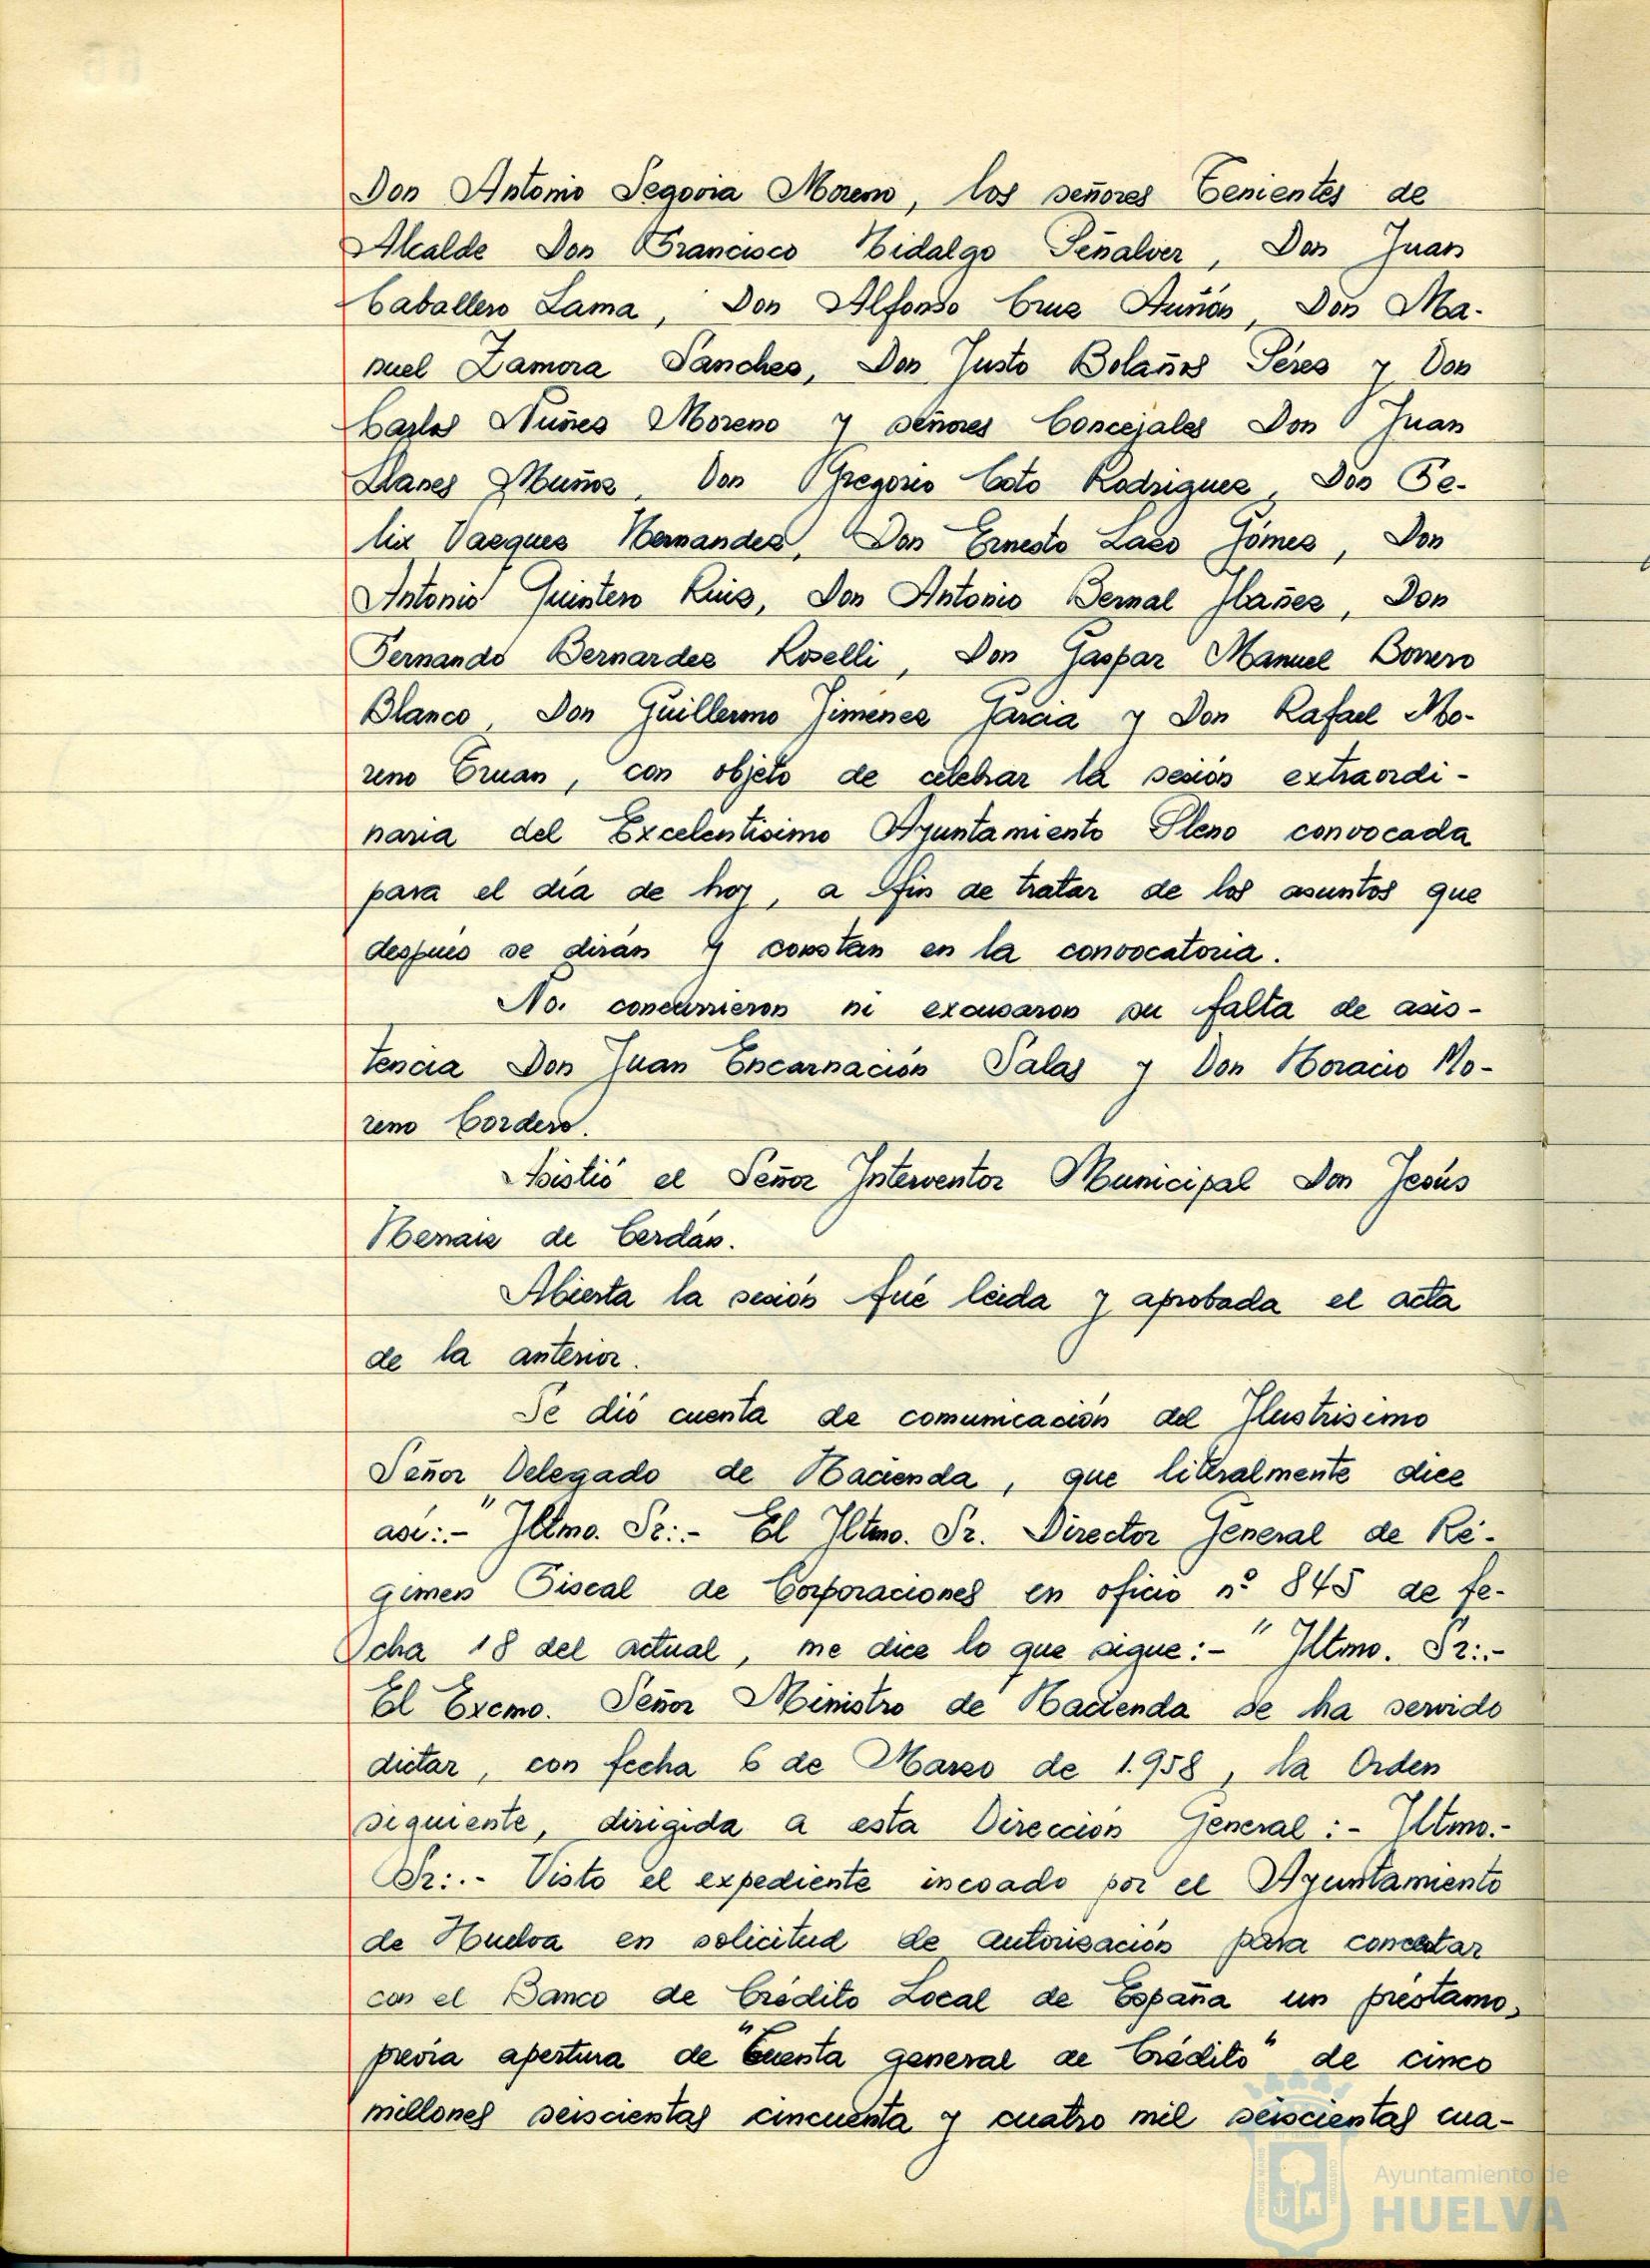 Don Antonio Segovia Moreno, los señores Tenientes de
Alcalde Don Francisco Hidalgo Peñalver, Don Juan
Caballero Lama, Don Alfonso Cruz Auñón, Don Ma-
nuel Zamora Sanchez, Don Justo Bolaños Pérez y Don
Carlos Nuñez Moreno y señores Concejales Don Juan
Llanes Muñoz, Don Gregorio Coto Rodriguez, Don Fe-
lix Vazquez Hernandez, Don Ernesto Lazo Gómez, Don
Antonio Quintero Ruiz, Don Antonio Bernal Ibañez, Don
Fernando Bernardez Roselli, Don Gaspar Manuel Borrero
Blanco, Don Guillermo Jiménez García y Don Rafael Mo-
reno Eruan, con objeto de celebrar la sesión extraordi-
naria del Excelentísimo Ayuntamiento Pleno convocada
para el día de hoy, a fin de tratar de los asuntos que
después se dirán y constan en la convocatoria.
No. concurrieron ni excusaron su falta de asis-
tencia Don Juan Encarnación Salas y Don Horacio Mo-
reno Cordero.
Asistió el Señor Interventor Municipal Don Jesús
Hernaiz de Cerdán.
Abierta la sesión fué leida y aprobada el acta
de la anterior.
Se dió cuenta de comunicación del Ilustrisimo
Señor Delegado de Hacienda, que literalmente dice
asi:.- "Iltmo. Sr:.- El Iltmo. Sr. Director General de Ré-
gimen Fiscal de Corporaciones en oficio nº 845 de fe-
cha 18 del actual, me dice lo que sigue:- "Iltmo. Sr:.-
El Excmo. Señor Ministro de Hacienda se ha servido
dictar, con fecha 6 de Marzo de 1.958, la Orden
siguiente, dirigida a esta Dirección General:- Iltmo.-
Sr:.- Visto el expediente incoado por el Ayuntamiento
de Huelva en solicitud de autorización para concertar
con el Banco de Crédito Local de España un préstamo,
previa apertura de "Cuenta general de Crédito" de cinco
millones seiscientas cincuenta y cuatro mil seiscientas cua-
Ayuntamiento de
HUELVA